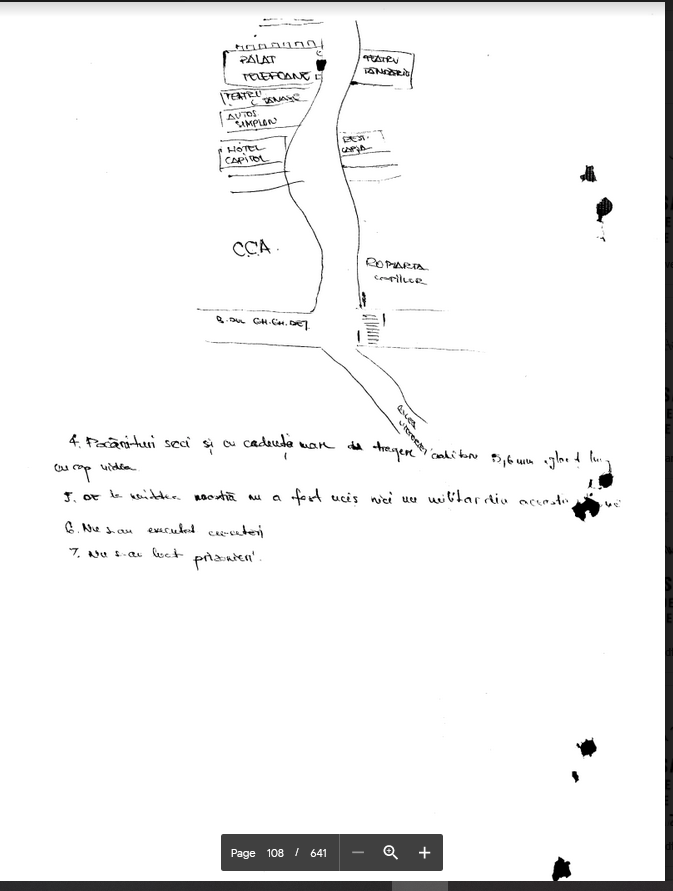 PALAT
TELEFOANE
TEATRU
TANDARICA
TEATRU
C TANASE
AUTOS.
SIMPLON
HOTEL
CAPITOL
REST.
CAPȘA
C.C.A.
ROMARTA
COPIILOR
B-DUL GH.GH.DEJ.
4. Pocănituri seci și cu cadență mare de tragere, calibru 5,6 mm
cu cap vidia
5. de la unitatea noastră nu a fost ucis nici un militar din această
6. Nu s-au executat
7. Nu s-au luat prizonieri.
Page 108 / 641